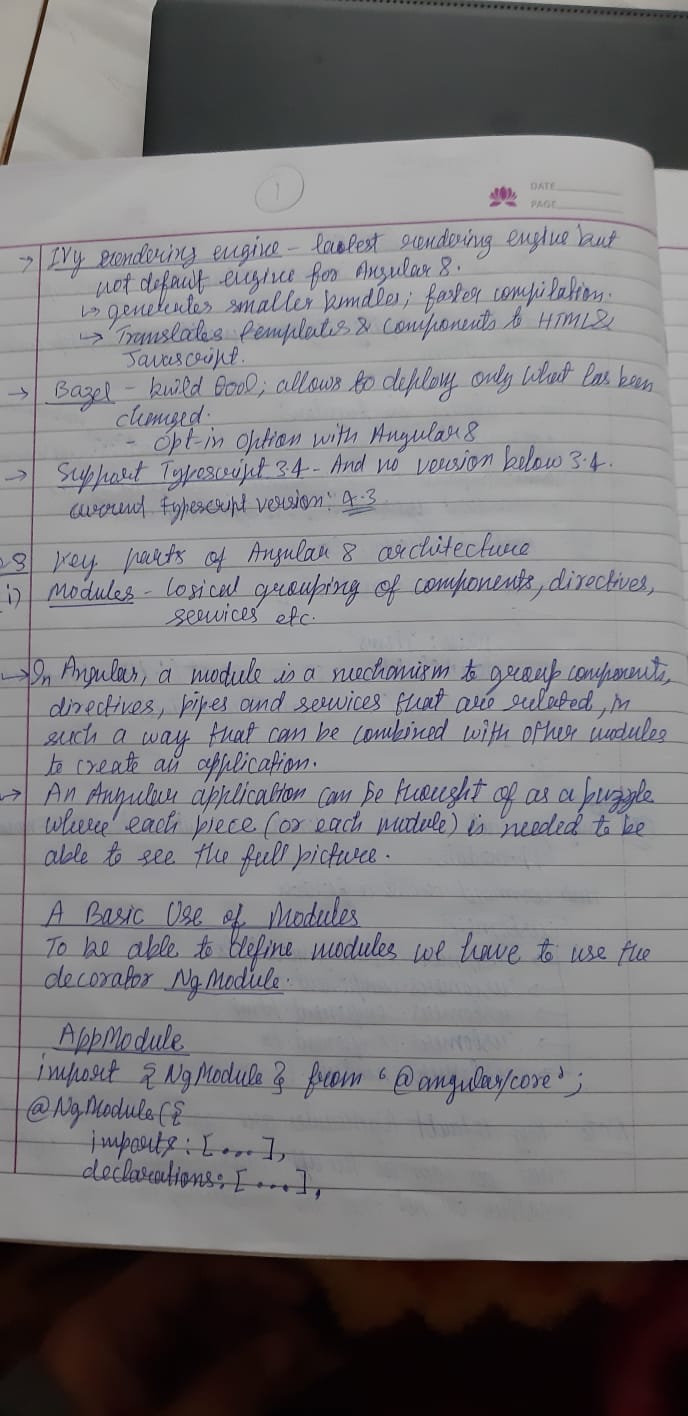 1
DATE
PAGE
→ IVy rendering engine - lastest rendering engine but
not default engine for Angular 8.
↳ generates smaller bundles; faster compilation.
→ Translates templates & components to HTML &
Javascript.
→ Bazel - build tool; allows to deploy only what has been
changed.
- opt-in option with Angular 8
→ Support Typescript 3.4 - And no version below 3.4.
current typescript version: 4.3
key parts of Angular 8 architecture
i) Modules - logical grouping of components, directives,
services etc.
→ In Angular, a module is a mechanism to group components,
directives, pipes and services that are related, in
such a way that can be combined with other modules
to create an application.
→ An Angular application can be thought of as a puzzle
where each piece (or each module) is needed to be
able to see the full picture.
A Basic Use of Modules
To be able to define modules we have to use the
decorator NgModule.
AppModule
import { NgModule } from '@angular/core';
@NgModule({
imports: [....],
declarations: [....],